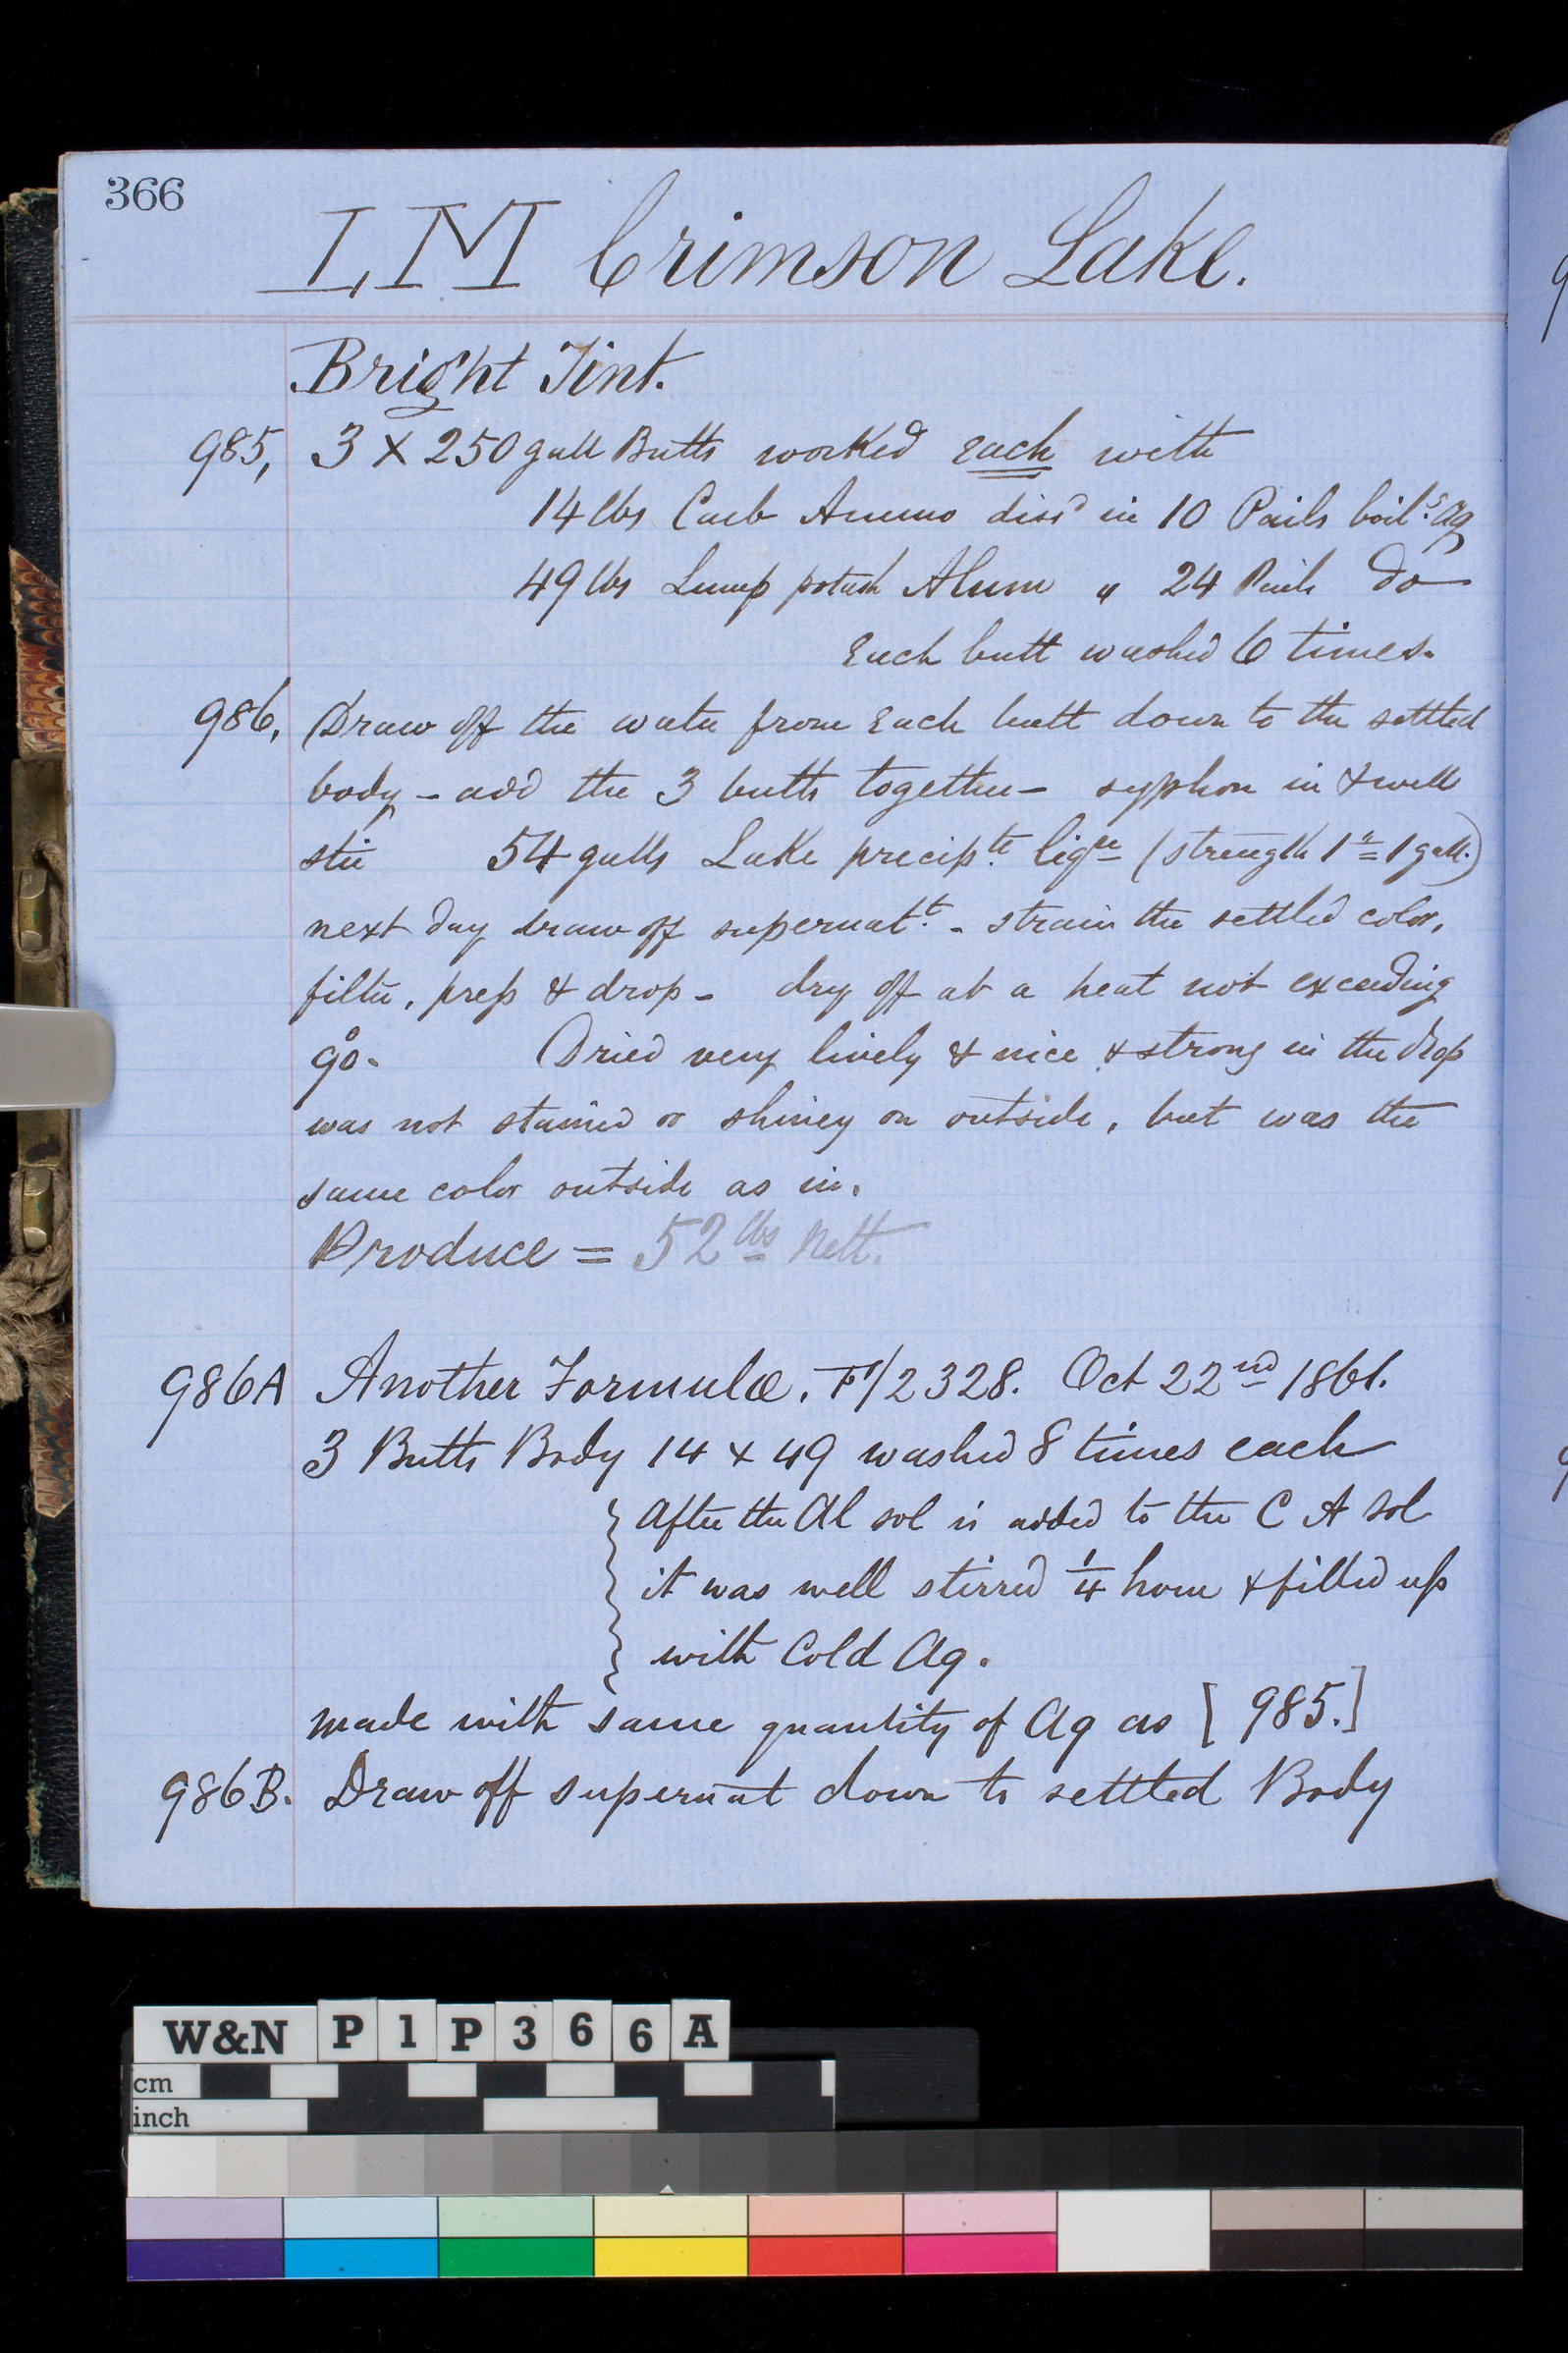 366
LM Crimson Lake.
Bright Tint.
985, 3 X 250 gall Butts worked each with
14 lbs Carb Ammo diss^d in 10 Pails boil^g aq
49 lbs Lump potash Alum " 24 Pails do
Each butt washed 6 times.
986, Draw off the water from Each butt down to the settled
body - add the 3 butts together - syphon in & well
stir 54 galls Lake precip^te liq^re (strength 1^# = 1 gall.)
next day draw off supernat^t - strain the settled color,
filter, press & drop - dry off at a heat not exceeding
90°. Dried very lively & nice & strong in the drop
was not stained or shiney on outside, but was the
same color outside as in.
Produce = 52 lbs Nett.
986A Another Formula. P1/2328. Oct 22nd 1861.
3 Butts Body 14 & 49 washed 8 times each
After the Al sol is added to the C A sol
it was well stirred 1/4 hour & filled up
with Cold Aq.
made with same quantity of Aq as [985.]
986B. Draw off supernat down to settled Body
W&N P1P366A
cm
inch